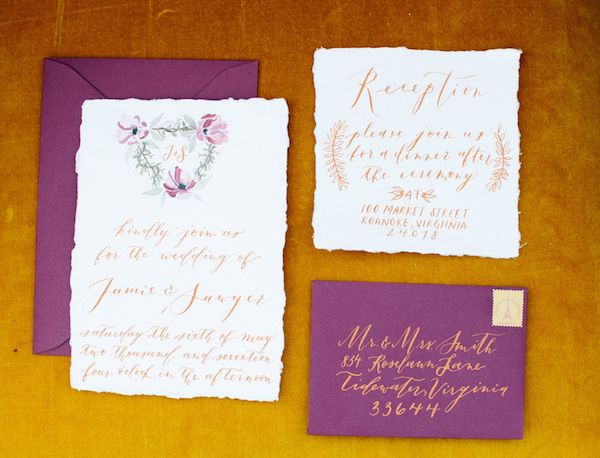 J&S
kindly join us
for the wedding of
Jamie & Sawyer
saturday the sixth of may
two thousand and seventeen
four o'clock in the afternoon
Reception
please join us
for a dinner after
the ceremony
AT
100 MARKET STREET
ROANOKE, VIRGINIA
24018
Mr. & Mrs. Smith
834 Roselawn Lane
Tidewater, Virginia
33644